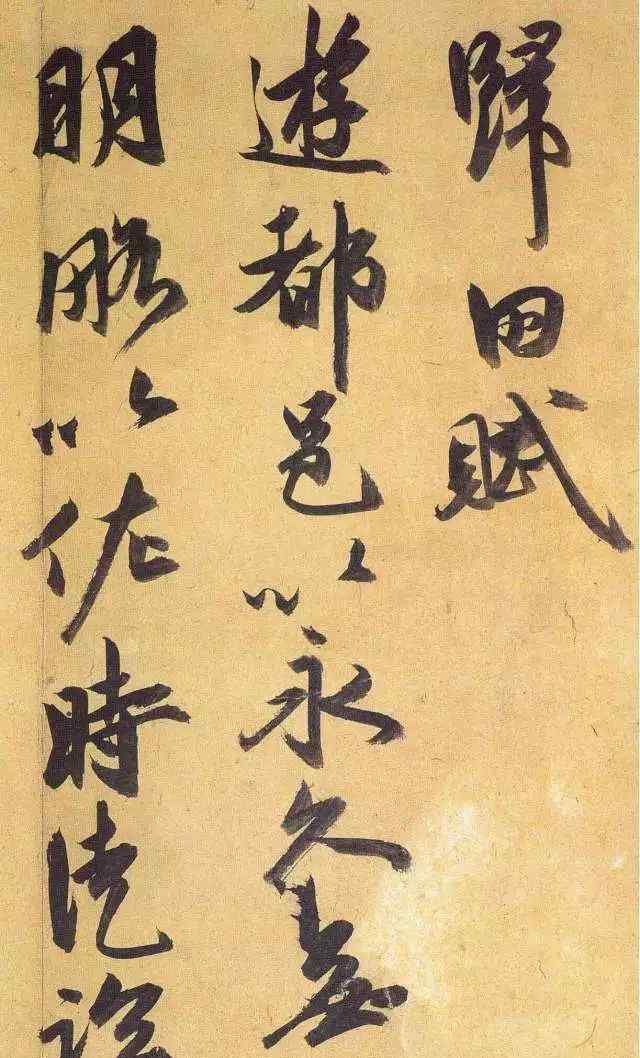 歸田賦
遊都邑以永久無
明略以佐時徒